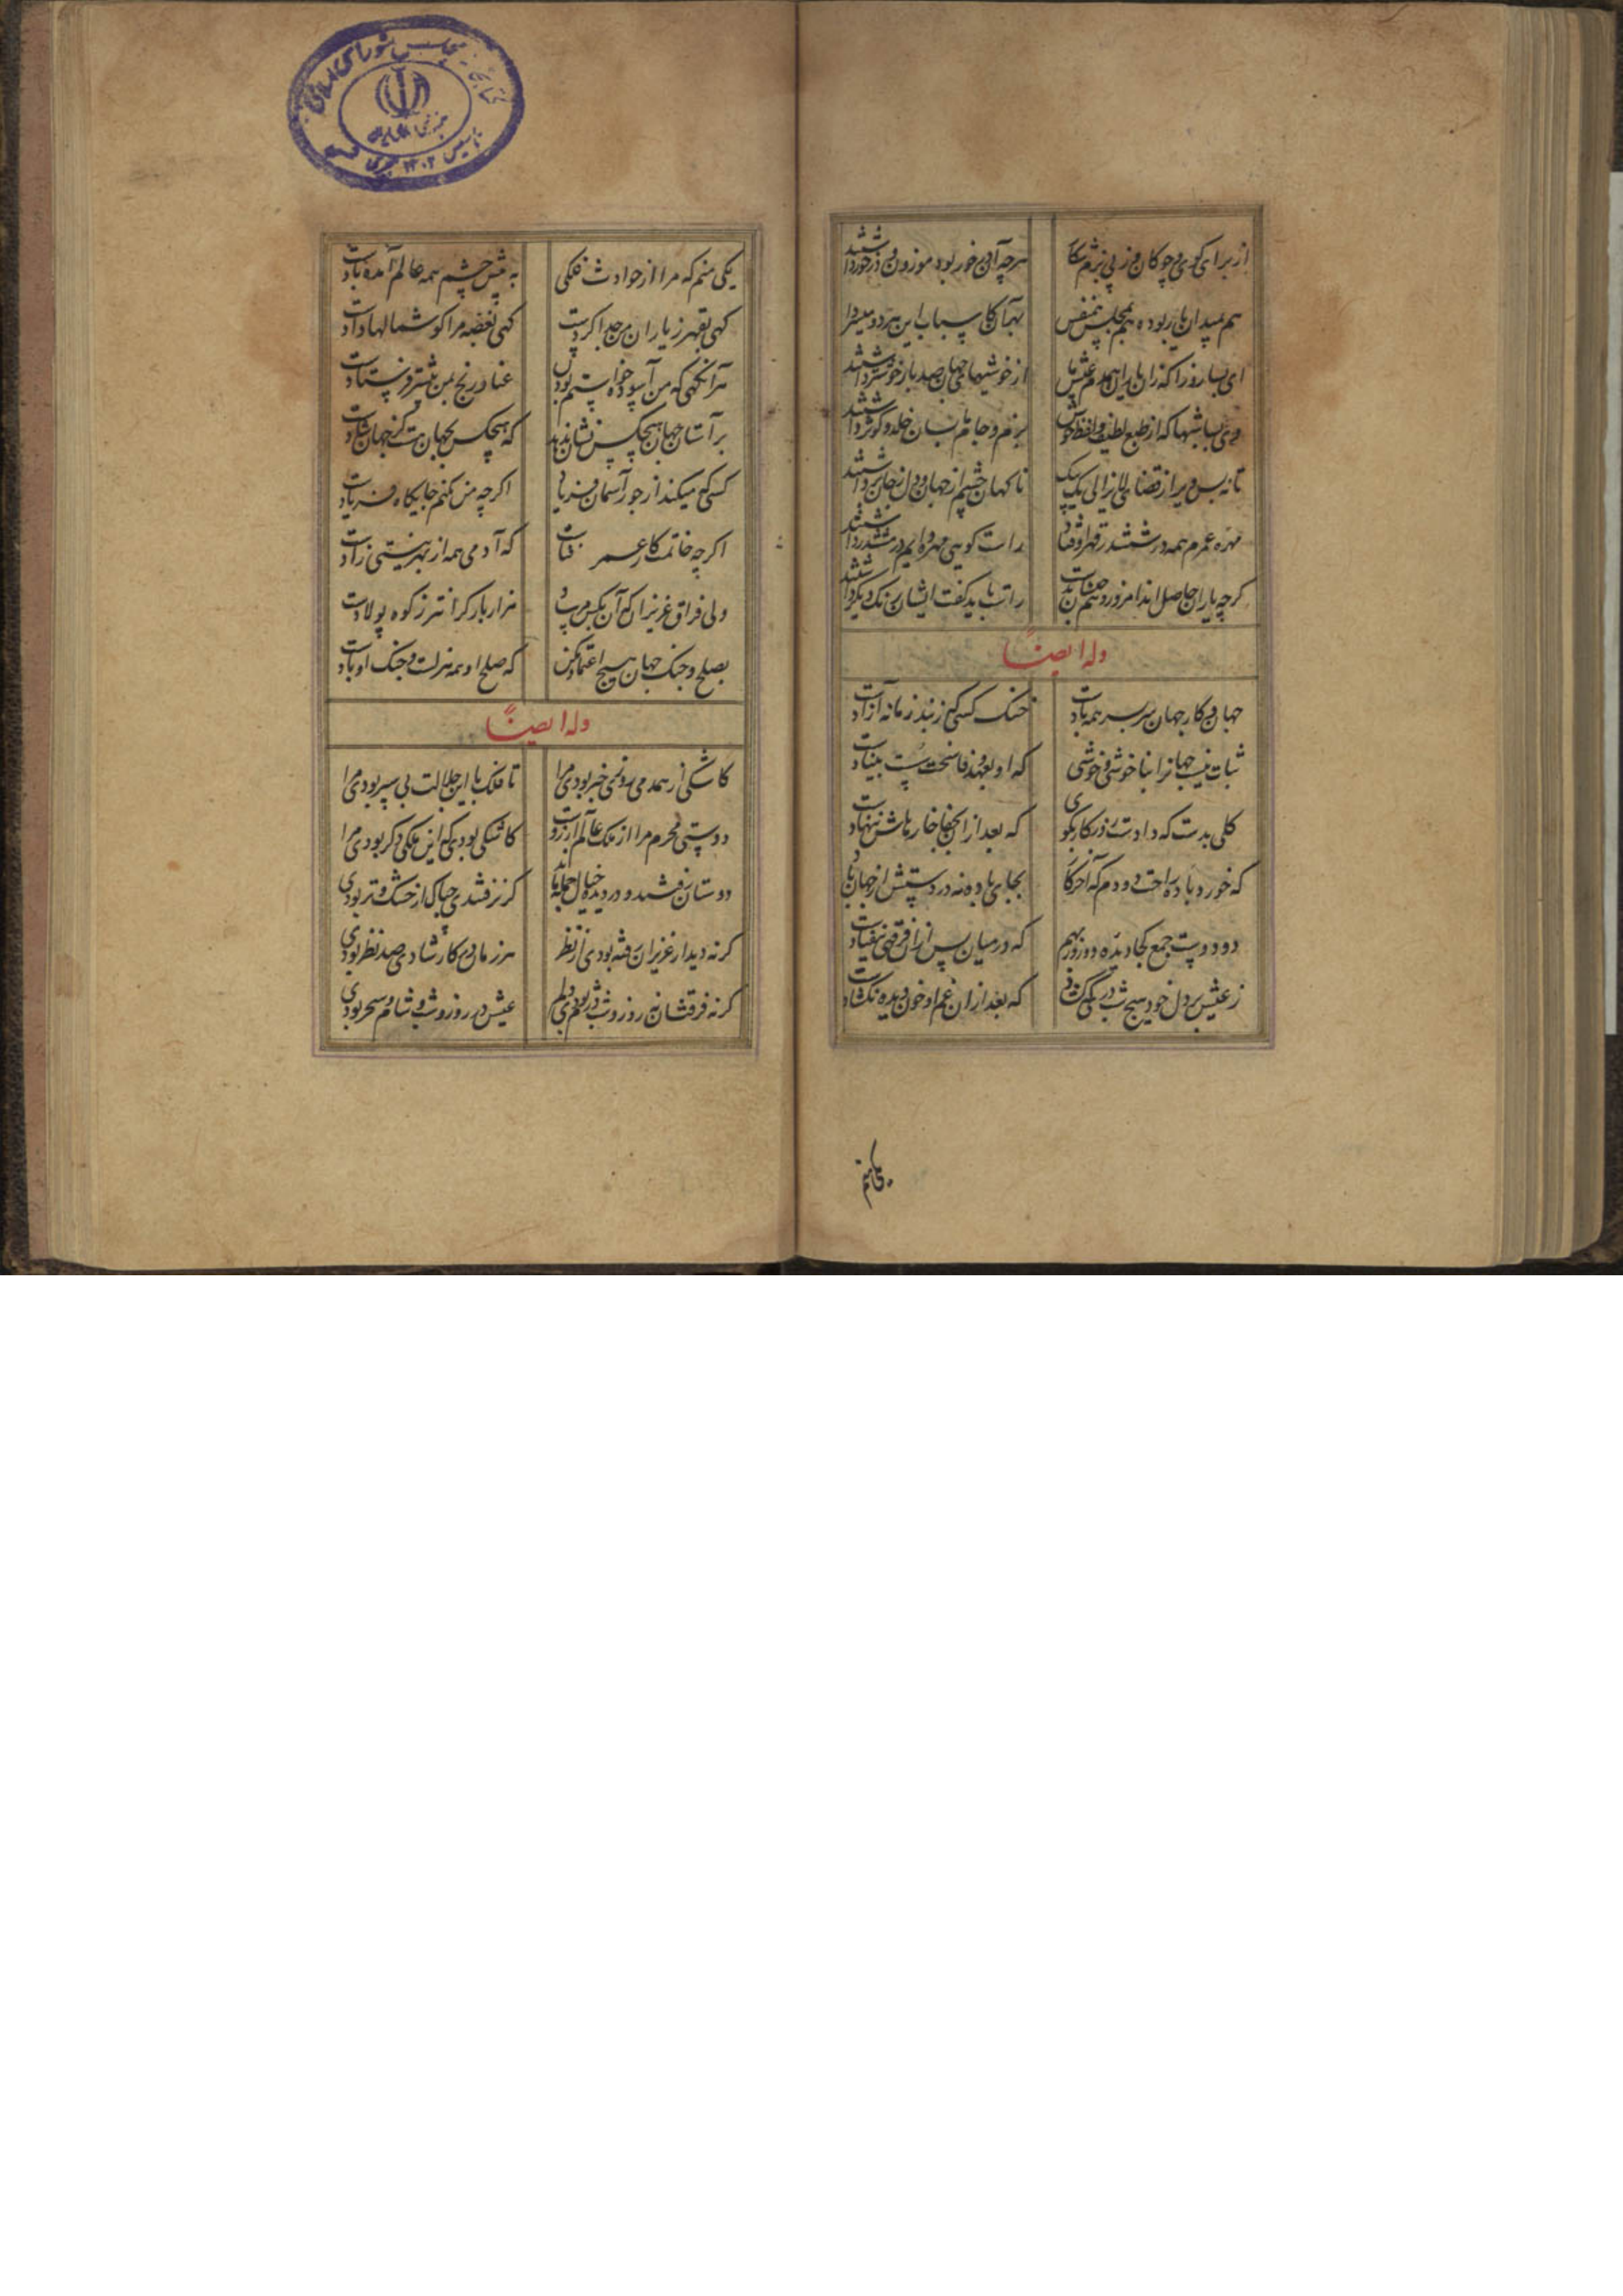 از برای گوی و چوکان و ز پی بزم شکار
هرچه آن در خور بود موزون و در خور داشتند
هم بمیدان یار بوده هم بمجلس همنفس
ای بسا روزا که زان یاران همدم عیش ما
از خوشیهای جهان صد بار خوشتر داشتند
وی بسا شبها که از طبع لطیف و لفظ خوش
بزم و جام ما بسان خلد و کوثر داشتند
تا نه بس دیر از قضای لایزالی یک بیک
ناکهان چشم از جهان و دل ز جان برداشتند
مهره عمرم همه در ششدر قهر اوفتاد
راست کویی مهره وایم در ششدر داشتند
کرچه یاران حاصل اند امروز و هم
راست باید گفت ایشان رنک دیگر داشتند
وله ایضاً
جهان و کار جهان سر بسر همه بادست
خنک کسی که ز بند زمانه آزادست
ثبات نیست جهانرا بناخوشی و خوشی
که او بعهد وفا سخت سست بنیادست
کلی بدست که دادست روزکار بگوی
که بعد از آن بجفا خارهاش ننهادست
که خورد باده راحت دو دم که آخر کار
بجای باده نه در دستش از جهان بادست
دو دوست جمع کجا دیده دو روز بهم
که در میان پس از آن فرقتی نیفتادست
ز عیش بر دل خود هیچ شب دری نکشاد
که بعد از آن غم او خون دیده نکشادست
یکی منم
یکی منم که مرا از حوادث فلکی
به پیش چشم همه عالم آمده بادست
کهی بقهر ز یاران مرا جدا کردست
کهی بغصه مرا کوشمالها دادست
هر آنکهی که من آسوده خواستم بودن
عنا و رنج بمن بیشتر فرستادست
بر آستان جهان هیچکس نشان ندهد
که هیچکس بجهان هست کز جهان شادست
کسی که میکند از جور آسمان فریاد
اکرچه من کنم جایکاه فریادست
اکرچه خاتمت کار عمر فناست
که آدمی همه از بهر نیستی زادست
ولی فراق عزیزان که آن بکس مرساد
هزار بار کرانتر ز کوه پولادست
بصلح و جنک جهان هیچ اعتماد مکن
که صلح او همه هزلست و جنک او بادست
وله ایضاً
کاشکی از همدمی روزی خبر بودی مرا
تا فلک با این جلالت پی سپر بودی مرا
دوستی محرم مرا از ملک عالم آرزوست
کاشکی بودی که این ملکی دکر بودی مرا
دوستان رفتند و در دیده خیال جمله ماند
کر نرفتندی چه باک از خشک و تر بودی
کر نه دیدار عزیزان رفته بودی از نظر
هر زمانی کار شادی صد نظر بودی
کر نه فرقتشان به روز و شب در بودی دلم
عیش در روز و شب و شام و سحر بودی